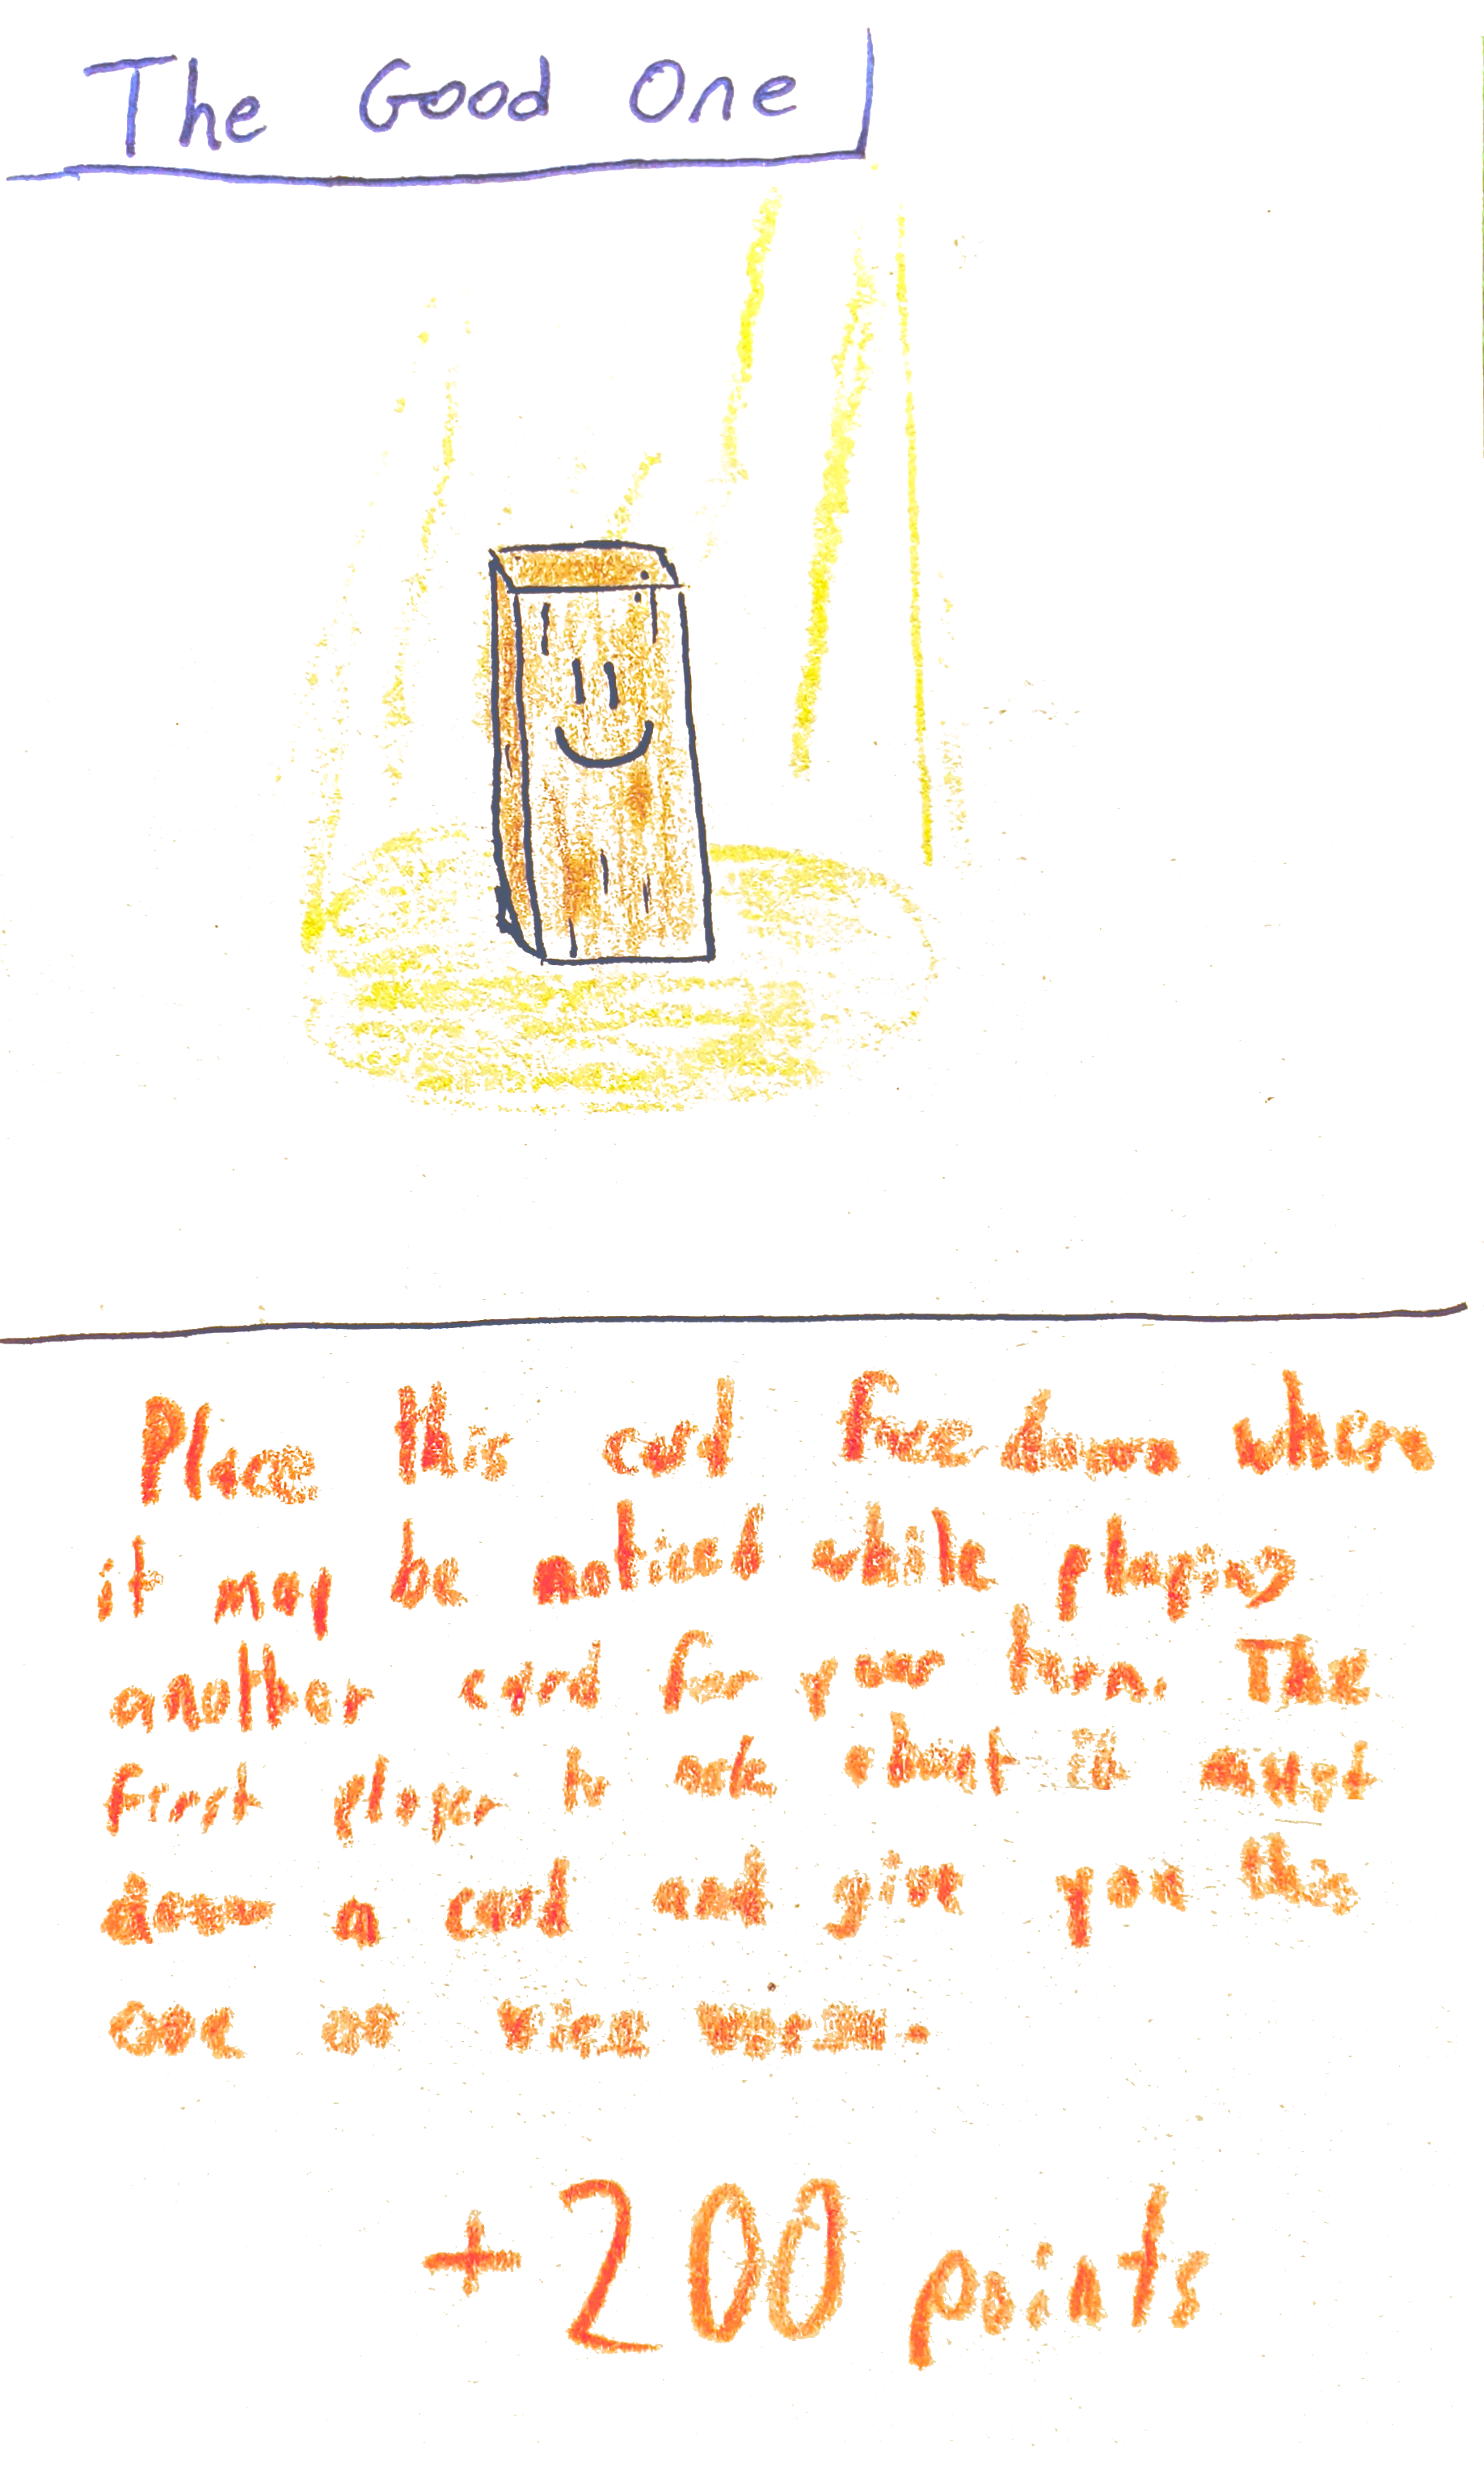 The Good One
Place this card face down where
it may be noticed while playing
another card for your turn. The
first player to ask about it must
down a card and give you this
one or vice versa.
+200 points